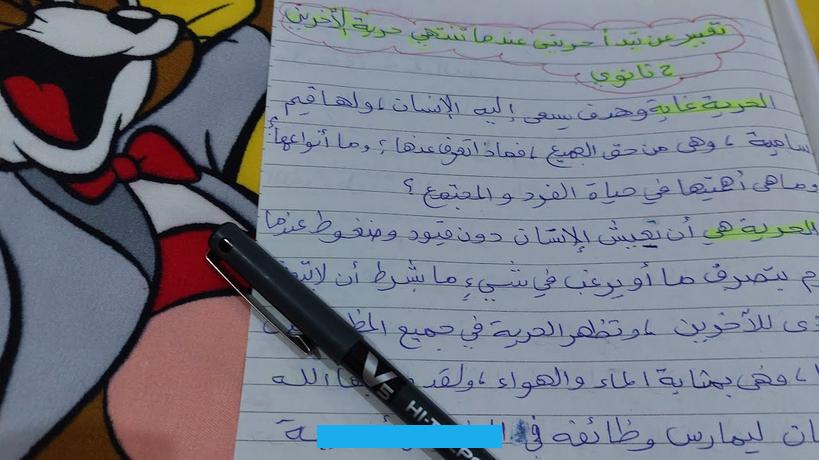 تعبير عن تبدأ حريتي عندما تنتهي حرية الآخرين
2 ثانوي
الحرية غاية وهدف يسعى إليه الإنسان ، ولها قيم
سامية ، وهي من حق الجميع ، فماذا تعرف عنها ؟ وما أنواعها
وما هي أهميتها في حياة الفرد و المجتمع ؟
الحرية هي أن يعيش الإنسان دون قيود وضغوط عندما
م بتصرف ما أو يرغب في شيء ما بشرط أن لا
ذى للآخرين ، وتظهر الحرية في جميع
ا ، وهي بمثابة الماء والهواء ، ولقد الله
ان ليمارس وظائفه في
V5 HI-TE